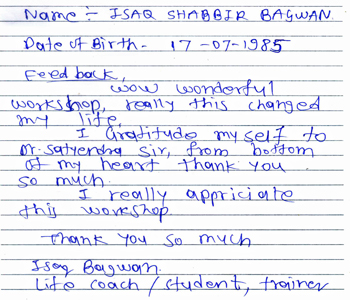 Name :- ISAQ SHABBIR BAGWAN.
Date of Birth - 17-07-1985
Feedback,
wow wonderful
workshop, really this changed
my life,
I Gratitude myself to
Dr. Satyendra Sir, from bottom
of my heart thank you
so much.
I really appriciate
this workshop.
Thank you so much
Isaq Bagwan.
Life coach / student, trainer